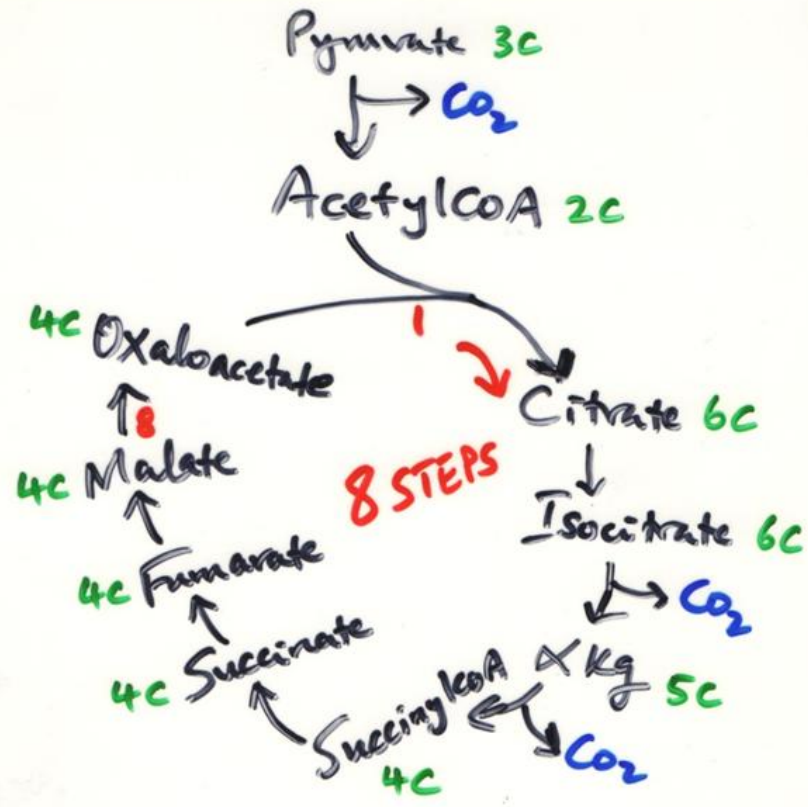 Pyruvate 3C
CO2
AcetylCoA 2C
4C Oxaloacetate
1
Citrate 6C
8
8 STEPS
4C Malate
Isocitrate 6C
4C Fumarate
CO2
4C Succinate
αKg 5C
SuccinylCoA
4C
CO2